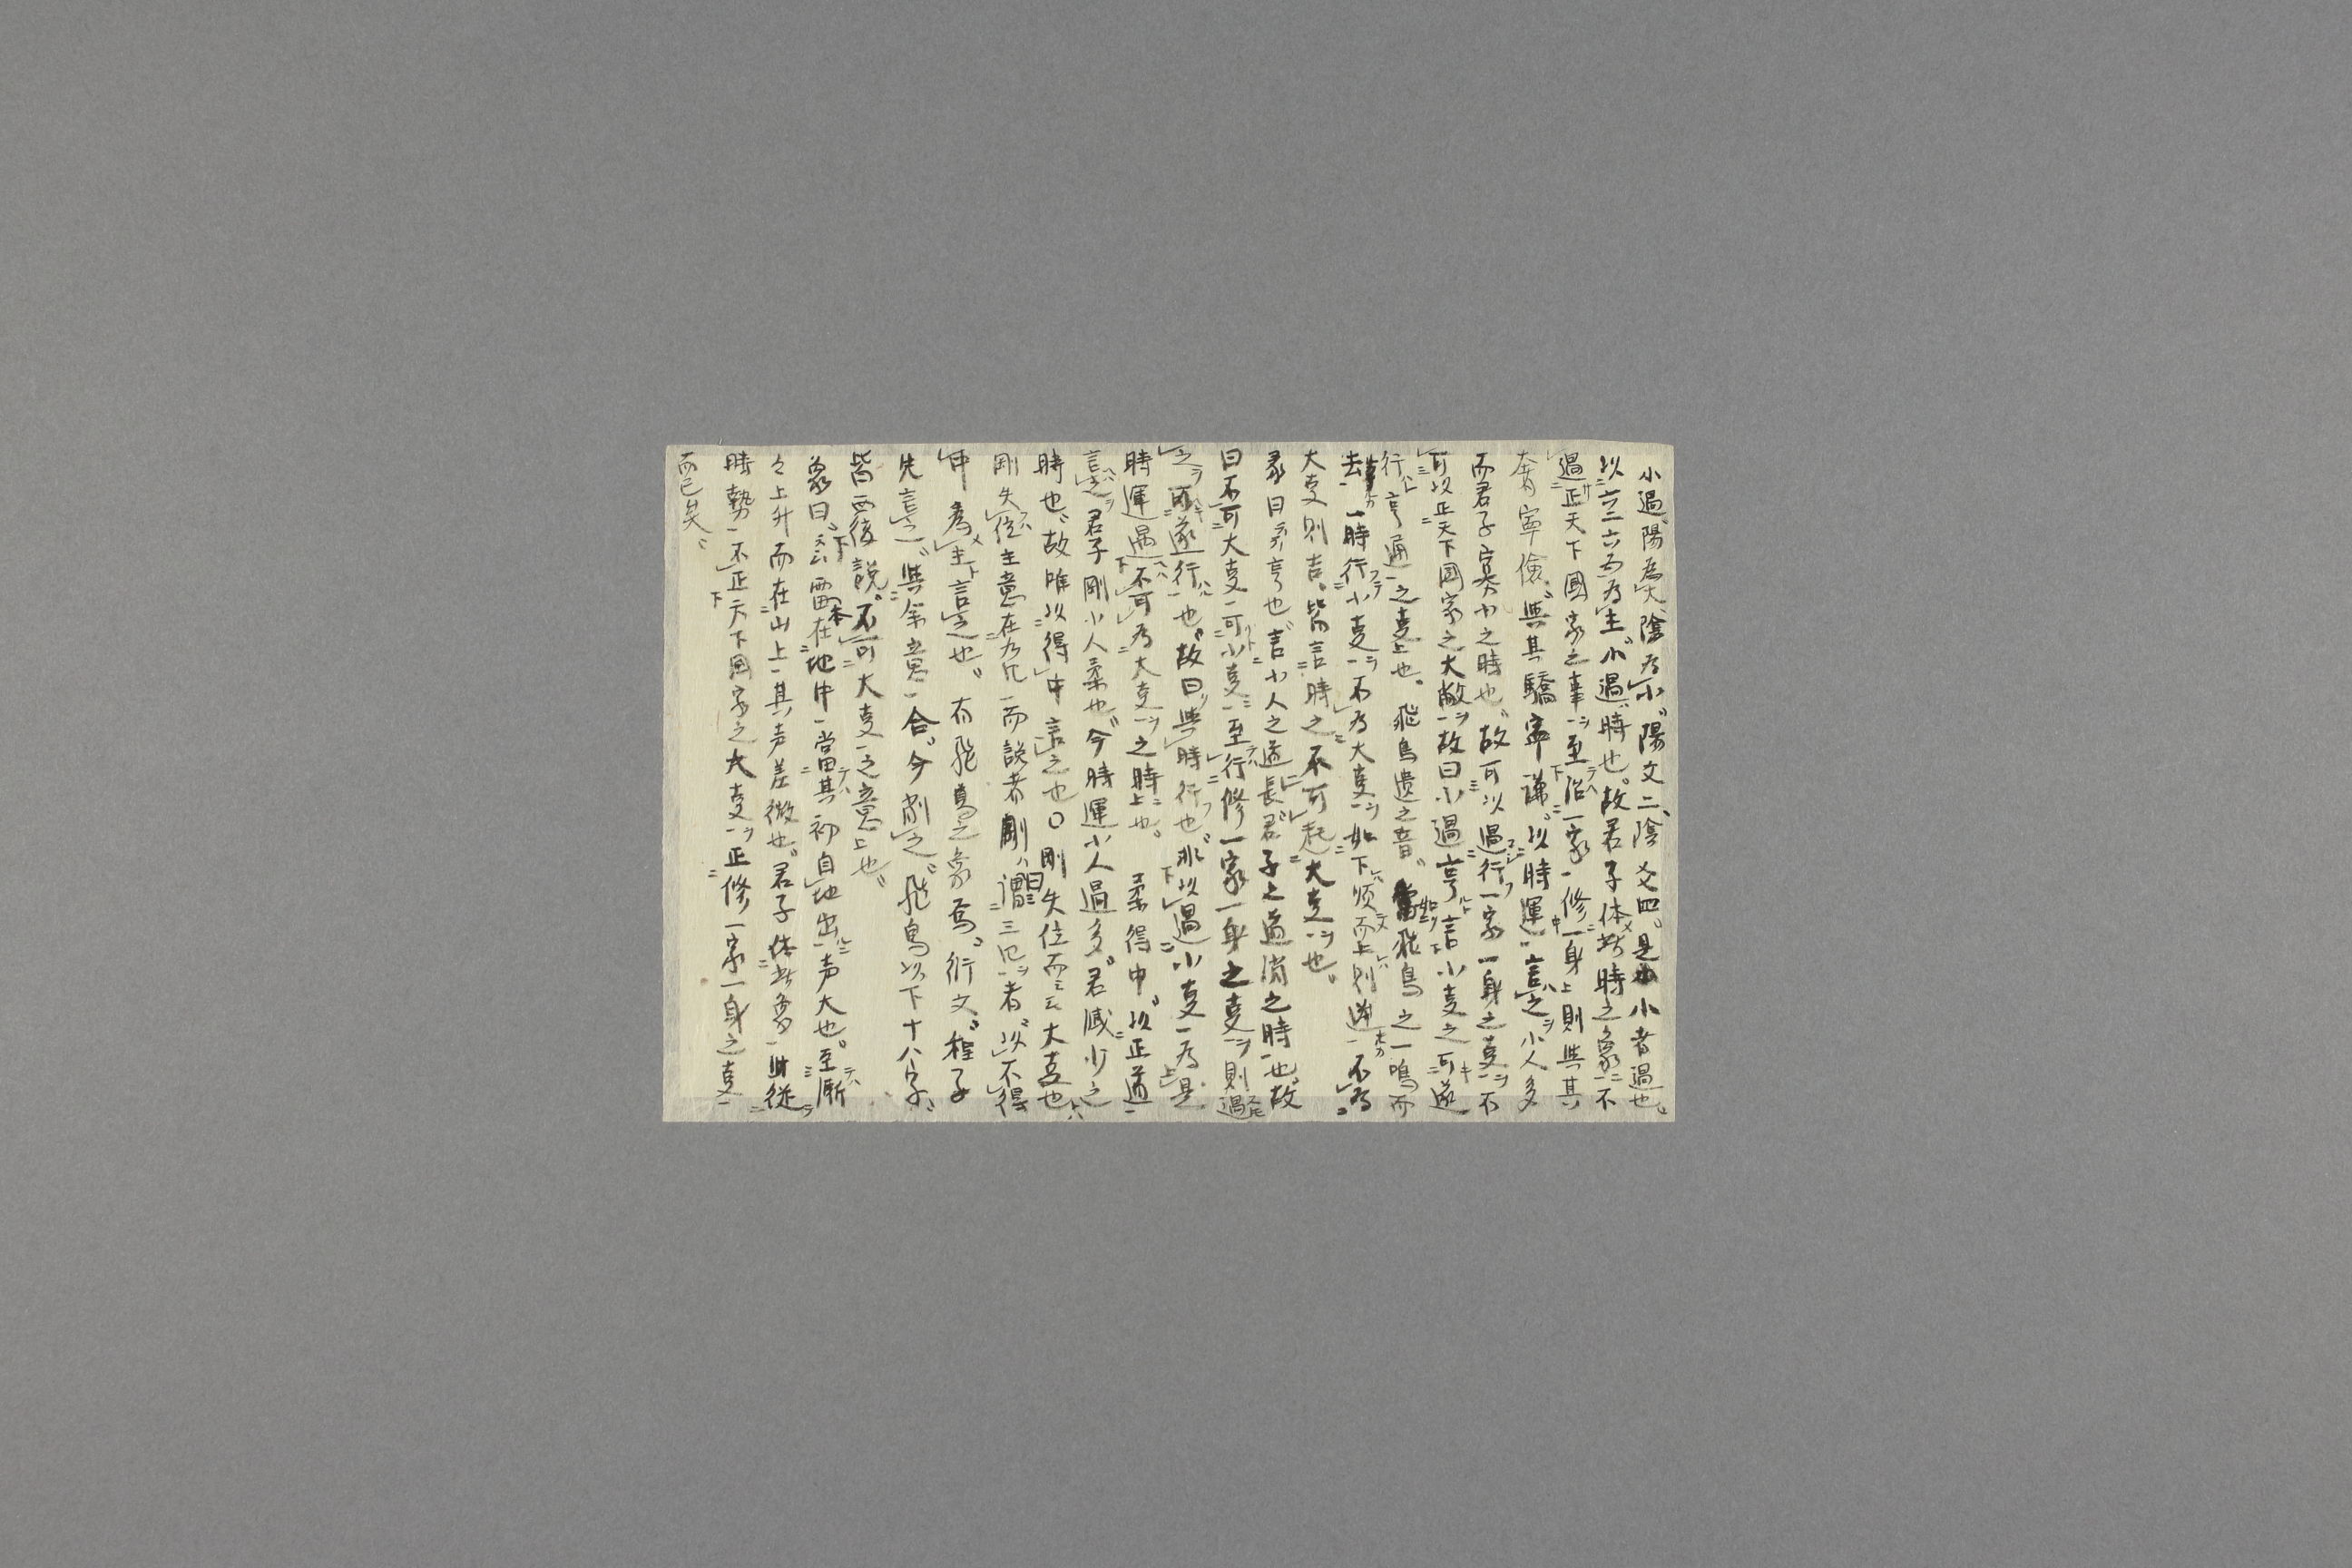 小過、陽為大、陰為小。陽文二、陰爻四。是小者過也。
以立二六爲為主。小過時也。故君子体此時之象不
過正天下國家之事、至治一家修一身則與其
奢寧儉、與其驕寧謙。以時運言之小人多
而君子寡少之時也。故可以過行一家一身之叓不
可以正天下國家之大敝。故曰小過亨。言小叓之可遂
行亨通之叓也。飛鳥遺之音。如飛鳥之一鳴而
去、一時行小叓不為大叓。如下順而上則逆。不為
大叓則吉。皆言時之不可起大叓也。
彖曰亨也。言小人之道長君子之道消之時也。故
曰不可大叓可小叓。至行修一家一身之叓則過
之可遂行也。故曰與時行也。非以過小叓為是
時運遇不可為大叓之時也。柔得中。以正道
言之君子剛小人柔也。今時運小人過多。君減少之
時也。故唯以得中言之也○剛失位而云大叓也
剛失位主意在九而說者剛謂三四者。以不得
中為主言之也。有飛鳥之象焉。衍文。程子
先言之。與余意合。今削之。飛鳥以下十八字。
皆西後說。不可大叓之意也。
象曰。云雷在地中當其初自地出声大也。至漸
々上升而在山上其声差微也。君子体此象與從
時勢不正天下国家之大叓正修一家一身之叓
而已矣。